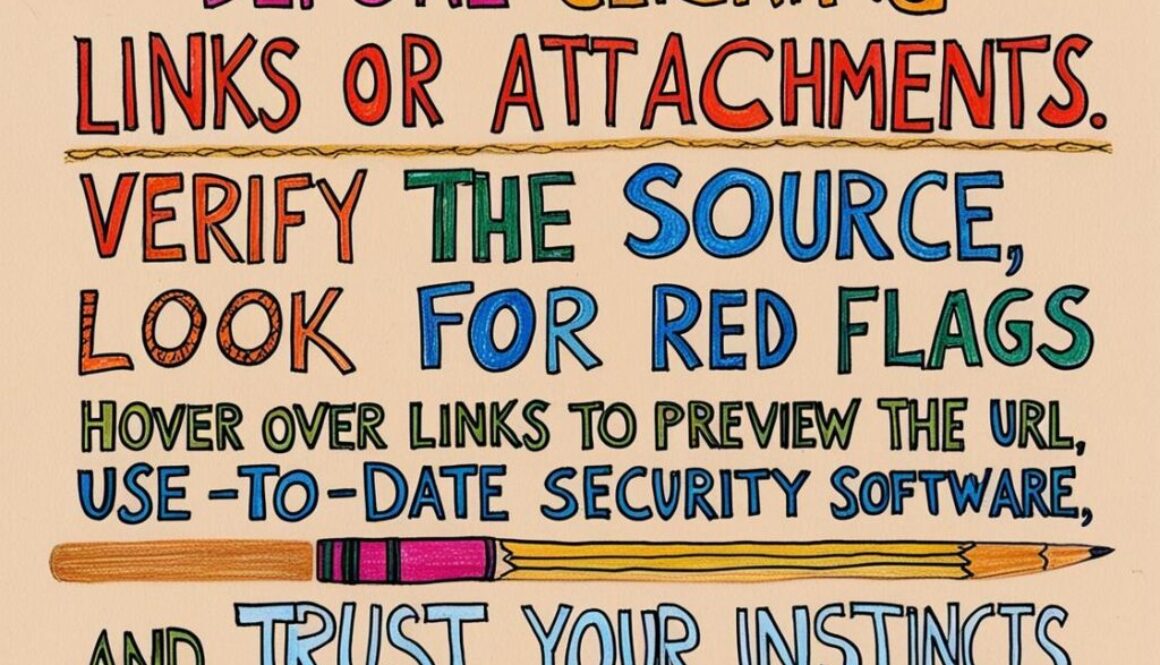 BEFORE CLICKING
LINKS OR ATTACHMENTS.
VERIFY THE SOURCE,
LOOK FOR RED FLAGS
HOVER OVER LINKS TO PREVIEW THE URL,
USE -TO-DATE SECURITY SOFTWARE,
AND TRUST YOUR INSTINCTS